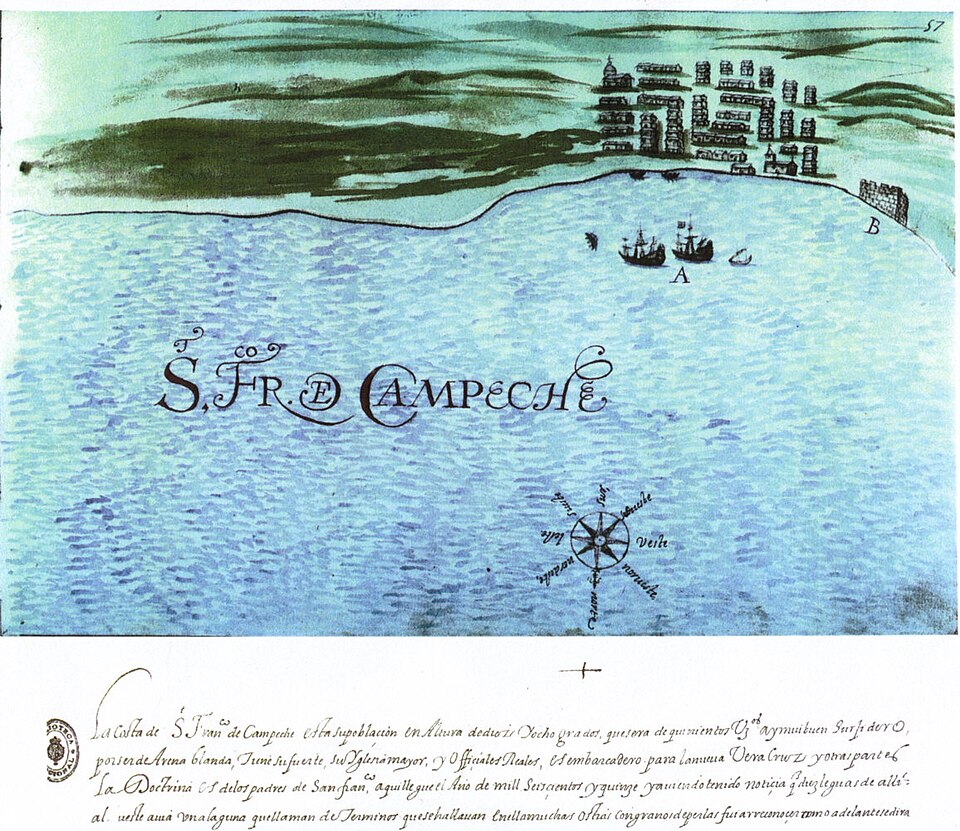 57
B
A
S.^t Fr.^co DE CAMPECHE
sur
sueste
leste
Veste
nordeste
norueste
norte
La Costa de S.^t Fran^co de Campeche esta su poblaçion en Altura de diez Y ocho grados, que sera de quinientos Uz^os ay mui buen Surjidero,
por ser de Arena blanda, Tiene su fuerte, su Yglesia mayor, y Officiales Reales, es embarcadero para la nueva Vera Cruz y otras partes
La Doctrina es de los padres de San fran^co, aqui llegue el Año de mill Seiscientos y quinze y aviendo tenido noticia q̃ diez leguas de alli
al veste avia Una laguna que llaman de Terminos que se hallavan en ella muchas Ostias con granos de perlas fui a rreconocer como adelante se dira